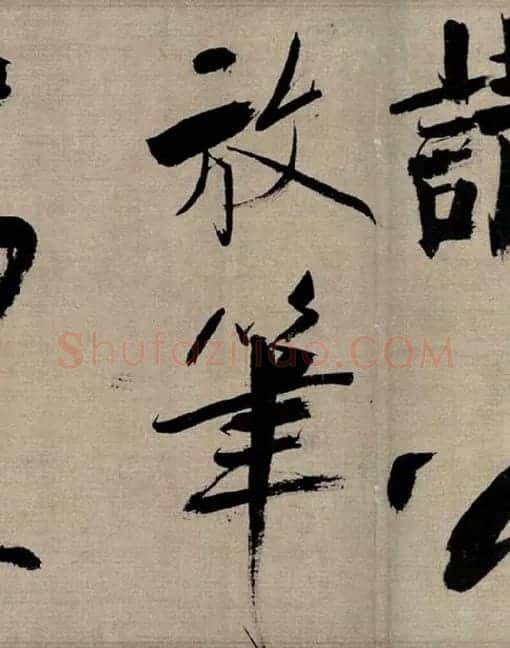 請公
放筆
Shufaziliao.COM